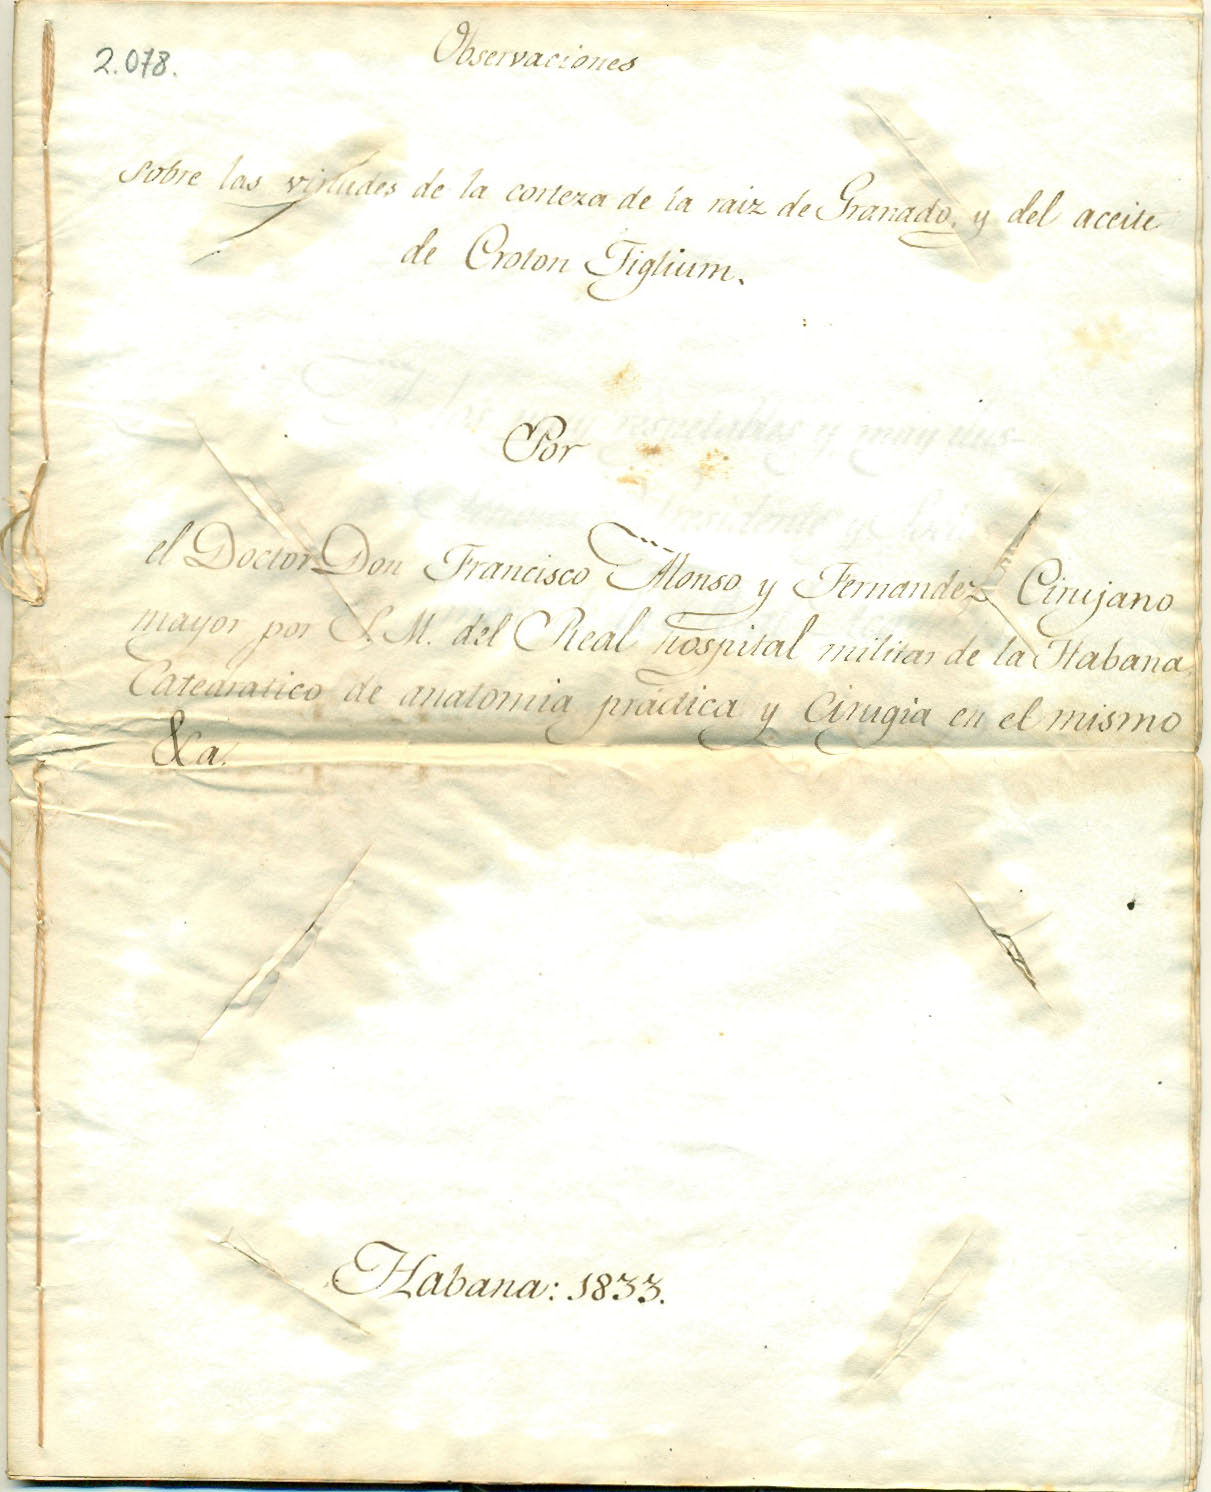 2.078.
Observaciones
sobre las virtudes de la corteza de la raiz de Granado, y del aceite
de Croton Tiglium.
Por
el Doctor Don Francisco Alonso y Fernandez Cirujano
mayor por S. M. del Real hospital militar de la Habana
Catedratico de anatomia práctica y Cirugia en el mismo
&a.
Habana: 1833.